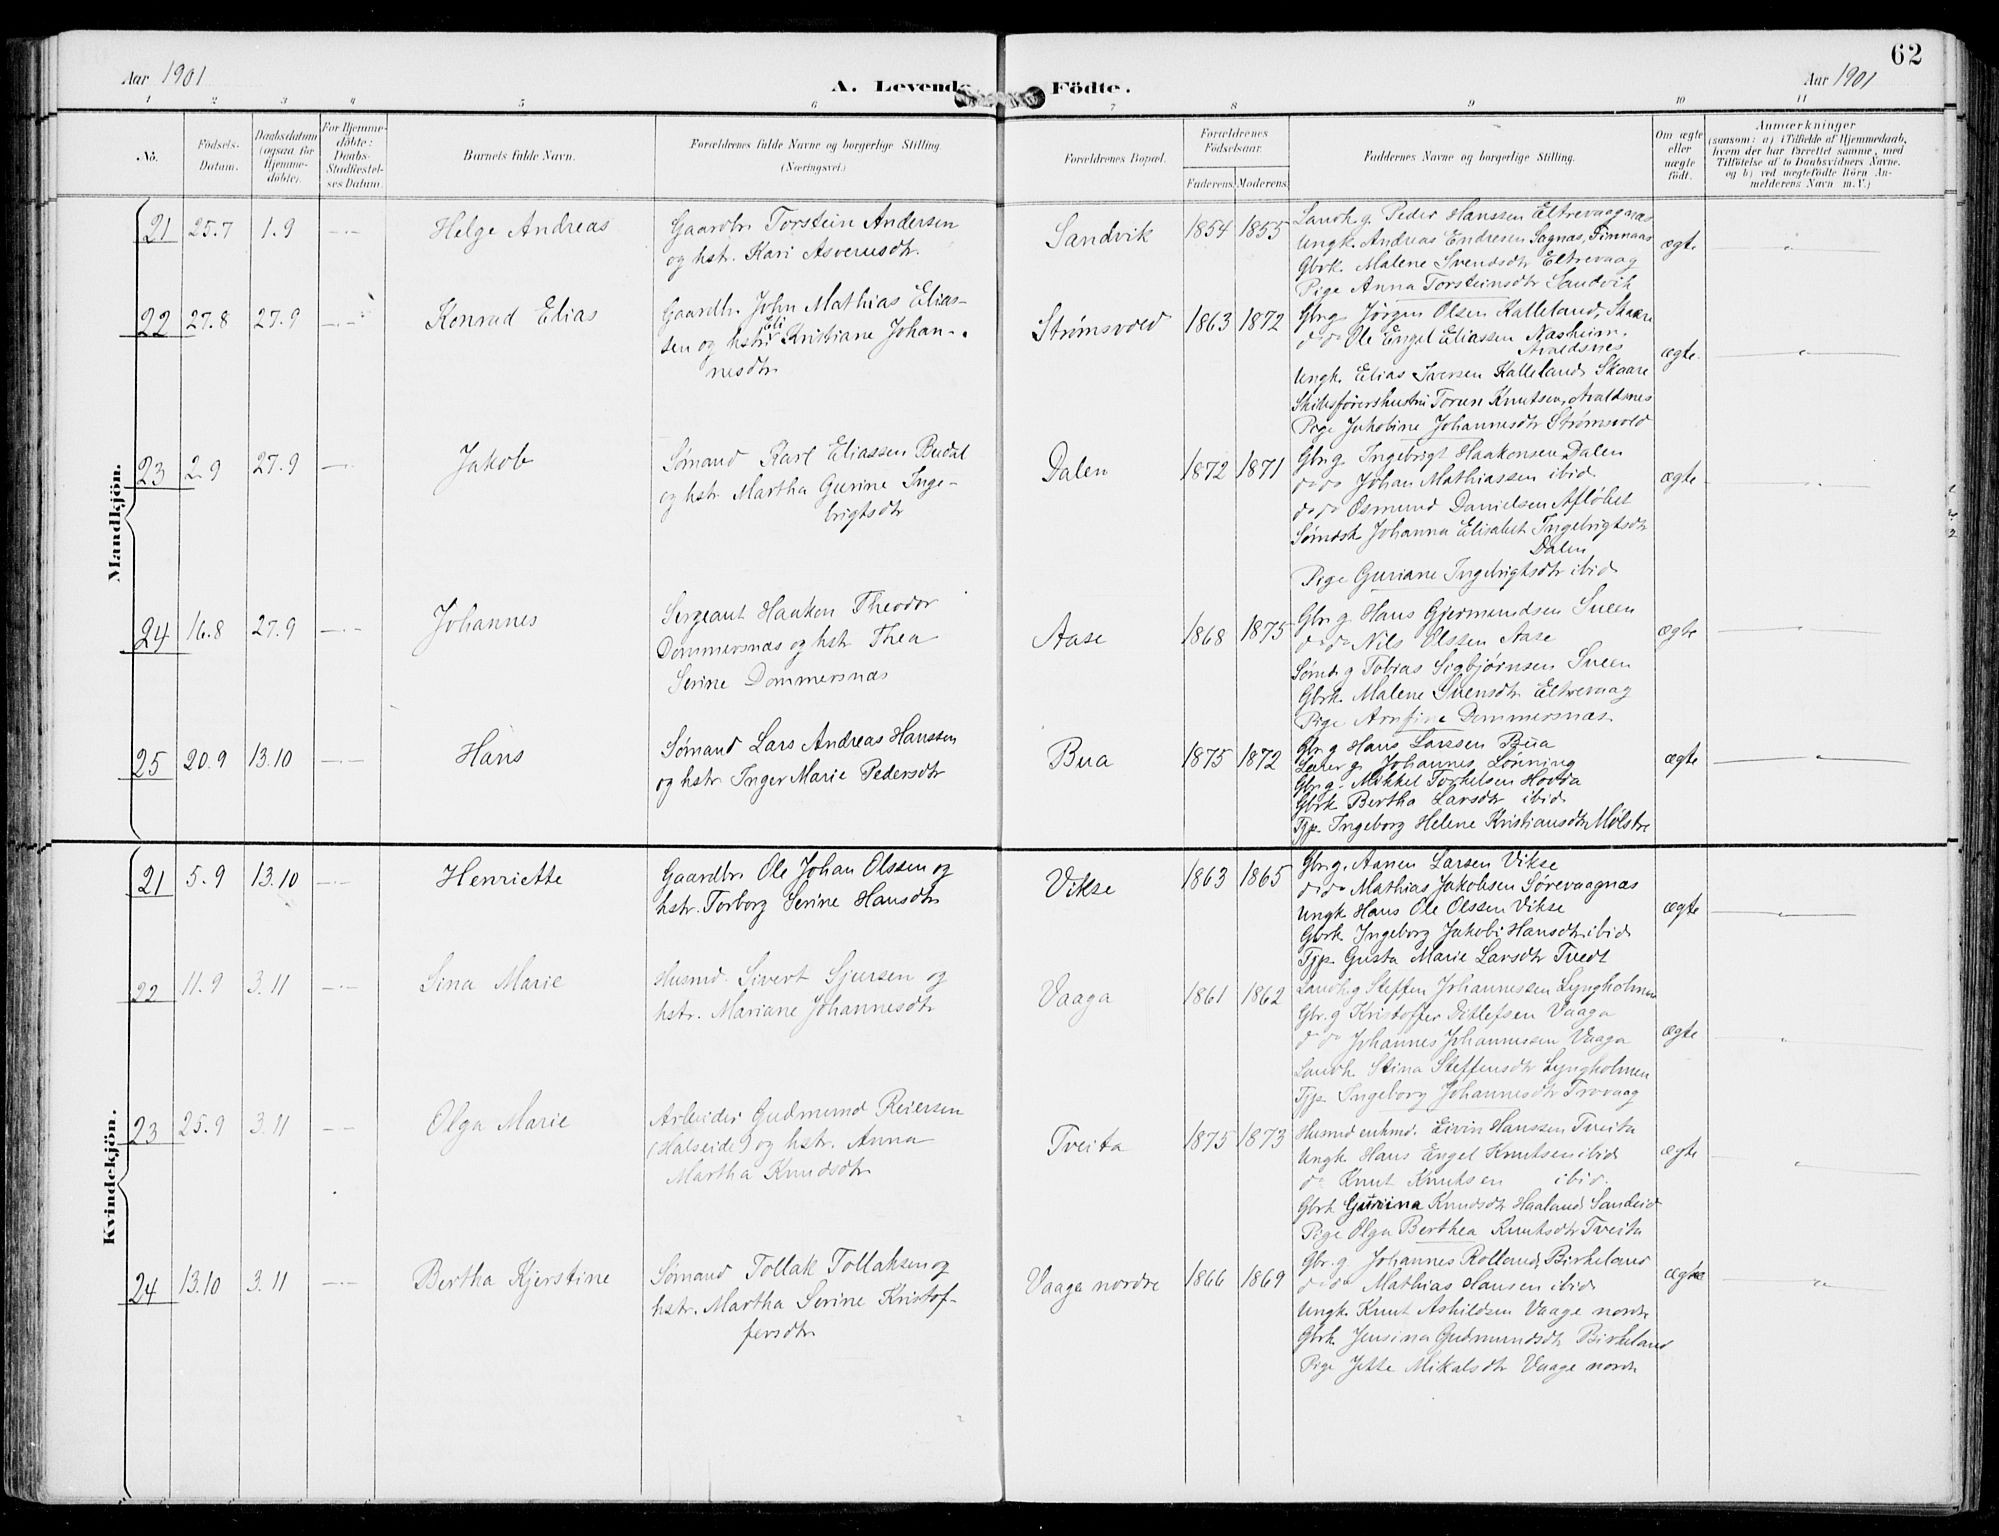 Aar 1901
A. Levende Födte.
62
Aar 1901
1 2 3 4 5 6 7 8 9 10 11
No.
Födsels-Datum.
Daabsdatum (ogsaa for Hjemme-döbte).
For Hjemme-döbte: Daabs-Stadfæstel-ses Datum.
Barnets fulde Navn.
Forældrenes fulde Navne og borgerlige Stilling
(Næringsvei.)
Forældrenes Bopæl.
Forældrenes Födselsaar.
Faderens. Moderens.
Faddernes Navne og borgerlige Stilling.
Om ægte eller uægte födt.
Anmærkninger
(saasom: a) i Tilfælde af Hjemmedaab,
hvem der har forrettet samme, med
Tilföielse af to Daabsvidners Navne.
og b) ved uægtefödte Börn An-
melderens Navn m. V.)
Mandkjön.
21 25.7 1.9 Helge Andreas
Gaardbr. Torstein Andersen
og hstr. Kari Asveriusdtr.
Sandvik 1854 1855
Landh. g. Peder Hanssen Eltrevaagnæs
Ungk. Andreas Endresen Sagnæs, Finnaas
Gbrk. Malene Svendsdtr Eltrevaag
Pige Anna Torsteinsdtr Sandvik
ægte
22 27.8 27.9 Konrad Elias
Gaardbr. John Mathias Elias-
sen og hstr. Eli Kristiane Johan-
nesdtr
Strømsvold 1863 1872
Gbr. g. Jørgen Olsen Kalleland, Skaare
do do Ole Engel Eliassen Næsheim,
Avaldsnes
Ungk. Elias Iversen Kalleland Skaare
Skibsførershustru Torun Knutsen, Avaldsnes
Pige Jakobine Johannesdtr Strømsvold
ægte.
23 2.9 27.9 Jakob
Sømand Karl Eliassen Budal
og hstr Martha Gurine Inge-
brigtsdtr
Dalen 1872 1871
Gbr. g. Ingebrigt Haakonsen Dalen
do do Johan Mathiassen ibid
do do Osmund Danielsen Afløbet
Sømdsk Johanna Elisabet Ingebrigtsdtr
Dalen
Pige Guriane Ingebrigtsdtr ibid
ægte
24 16.8 27.9 Johannes
Sergeant Haakon Theodor
Dommersnæs og hstr Thea
Serine Dommersnæs
Aase 1868 1875
Gbr. g. Hans Gjermundsen Sneen
do do Nils Olssen Aase
Sømd. g Tobias Sigbjørnsen Sneen
Gbrk. Malene Svensdtr Eltrevaag
Pige Arnfine Dommersnæs
ægte
25 20.9 13.10 Hans
Sømand Lars Andreas Hanssen
og hstr. Inger Marie Pedersdtr
Bua 1875 1872
Gbr. g Hans Larssen Bua
Lærer g. Johannes Lønning
Gbr. g. Mikkel Torkelsen Hovda
Gbrk Bertha Larsdtr ibid
Tjp. Ingeborg Helene Kristiansdtr Mølstre
ægte
Kvindekjön.
21 5.9 13.10 Henriette
Gaardbr. Ole Johan Olssen og
hstr. Torborg Serine Hansdtr
Vikse 1863 1865
Gbr. g. Aanen Larsen Vikse
do do Mathias Jakobsen Sørevaagnæs
Ungk Hans Ole Olssen Vikse
Gbrk. Ingeborg Jakobi Hansdtr ibid
Tjp. Gusta Marie Larsdtr Tvedt
ægte
22 11.9 3.11 Sina Marie
Husmd. Sivert Sjursen og
hstr. Mariane Johannesdtr
Vaaga 1861 1862
Landh. g Steffen Johannessen Lyngholmen
Gbr. g Kristoffer Ditlefsen Vaaga
do do Johannes Johannessen Vaaga
Landh. Stina Steffensdtr Lyngholmen
Tjp. Ingeborg Johannesdtr Trovaag
ægte
23 25.9 3.11 Olga Marie
Arbeider Gudmund Reiersen
(Halseide) og hstr. Anna
Martha Knudsdtr
Tveita 1875 1873
Husmd enkmd. Eivin Hanssen Tveita
Ungk. Hans Engel Knutsen ibid
do Knut Knutsen ibid.
Gbrk Gurina Knudsdtr Haaland Sandeid
Pige Olga Berthea Knutsdtr Tveita
ægte
24 13.10 3.11 Bertha Kjerstine
Sømand Tollak Tollaksen og
hstr. Martha Serine Kristof-
fersdtr
Vaage nordre 1866 1869
Gbr. g Johannes Rolland, Birkeland
do do Mathias Hansen ibid
Ungk. Knut Ashildsen Vaage nordre
Gbrk. Jensina Gudmundsdtr Birkeland
Pige Jette Mikalsdtr Vaage nordre
ægte